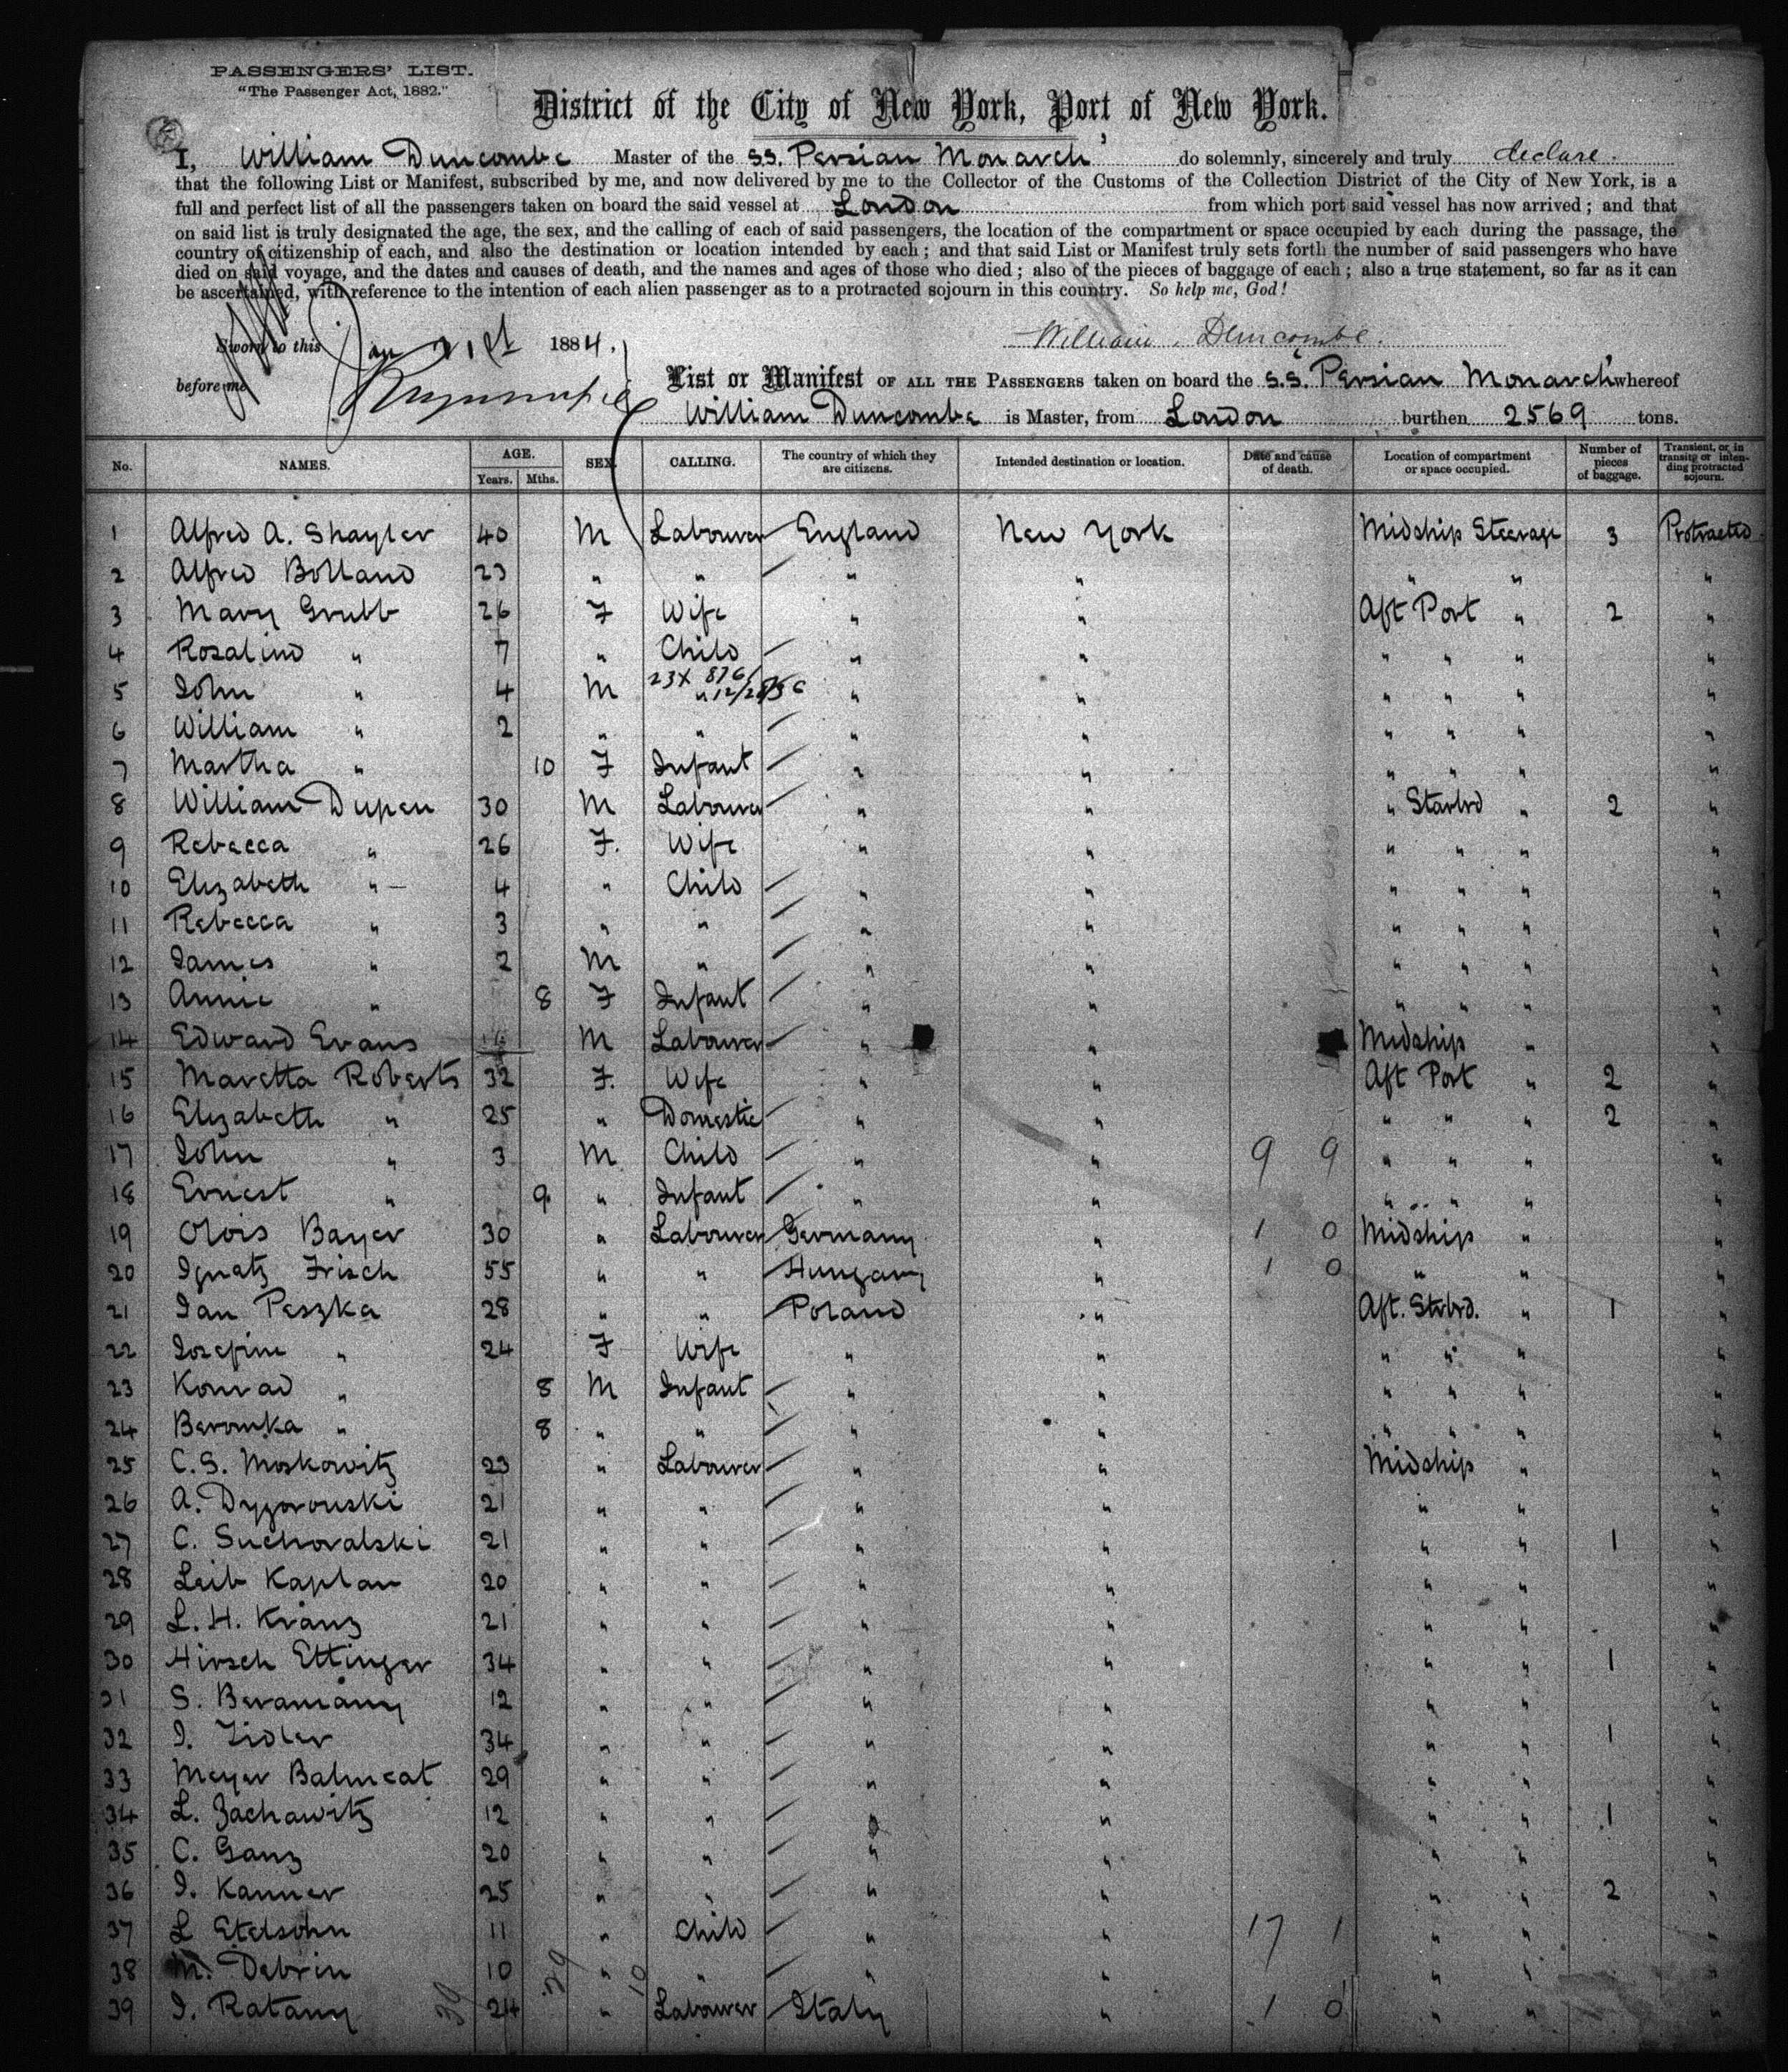 PASSENGERS' LIST.
"The Passenger Act, 1882."
District of the City of New York, Port of New York.
I, William Duncombe Master of the S.S. Persian Monarch do solemnly, sincerely and truly declare.
that the following List or Manifest, subscribed by me, and now delivered by me to the Collector of the Customs of the Collection District of the City of New York, is a
full and perfect list of all the passengers taken on board the said vessel at London from which port said vessel has now arrived; and that
on said list is truly designated the age, the sex, and the calling of each of said passengers, the location of the compartment or space occupied by each during the passage, the
country of citizenship of each, and also the destination or location intended by each; and that said List or Manifest truly sets forth the number of said passengers who have
died on said voyage, and the dates and causes of death, and the names and ages of those who died; also of the pieces of baggage of each; also a true statement, so far as it can
be ascertained, with reference to the intention of each alien passenger as to a protracted sojourn in this country. So help me, God!
Sworn to this Jan 21st 1884. William Duncombe.
before me
List or Manifest OF ALL THE PASSENGERS taken on board the S.S. Persian Monarch whereof
William Duncombe is Master, from London burthen 2569 tons.
No. NAMES. AGE. Years. Mths. SEX. CALLING. The country of which they are citizens. Intended destination or location. Date and cause of death. Location of compartment or space occupied. Number of pieces of baggage. Transient, or in transitu or intending protracted sojourn.
1 Alfred A. Shayler 40 M Labourer England New York Midship Steerage 3 Protracted
2 Alfred Bolland 23 " " " " " " "
3 Mary Grubb 26 F Wife " " Aft Port " 2 "
4 Rosalind " 7 " Child " " " " " "
23X 876/
5 John " 4 M " 12/28/36 " " " " " "
6 William " 2 " " " " " " " "
7 Martha " 10 F Infant " " " " " "
8 William Dupen 30 M Labourer " " " Starbrd " 2 "
9 Rebecca " 26 F. Wife " " " " " "
10 Elizabeth " 4 " Child " " " " " "
11 Rebecca " 3 " " " " " " " "
12 James " 2 M " " " " " " "
13 Annie " 8 F Infant " " " " " "
14 Edward Evans M Labourer " " Midship " "
15 Maretta Roberts 32 F. Wife " " Aft Port " 2 "
16 Elizabeth " 25 " Domestic " " " " " 2 "
17 John " 3 M Child " " 9 9 " " " "
18 Ernest " 9 " Infant " " " " " "
19 Olois Bayer 30 " Labourer Germany " 1 0 Midship " "
20 Ignatz Frisch 55 " " Hungary " 1 0 " " "
21 Jan Peszka 28 " " Poland " Aft. Strbrd. " 1 "
22 Josefine " 24 F Wife " " " " " "
23 Konrad " 8 M Infant " " " " " "
24 Beronika " 8 " " " " " " " "
25 C. S. Moskowitz 23 " Labourer " " Midship " "
26 A. Dyzorouski 21 " " " " " " "
27 C. Suchovalski 21 " " " " " " 1 "
28 Leib Kaplan 20 " " " " " " "
29 L. H. Kranz 21 " " " " " " "
30 Hirsch Ettinger 34 " " " " " " 1 "
31 S. Beramany 12 " " " " " " "
32 I. Zidler 34 " " " " " " 1 "
33 Meyer Balneat 29 " " " " " " "
34 L. Zachawitz 12 " " " " " " 1 "
35 C. Ganz 20 " " " " " " "
36 I. Kanner 25 " " " " " " 2 "
37 L Etelsohn 11 " Child " " 17 1 " " "
38 M. Debrin 10 " " " " " " "
39 I. Ratany 24 " Labourer Italy " 1 0 " " "